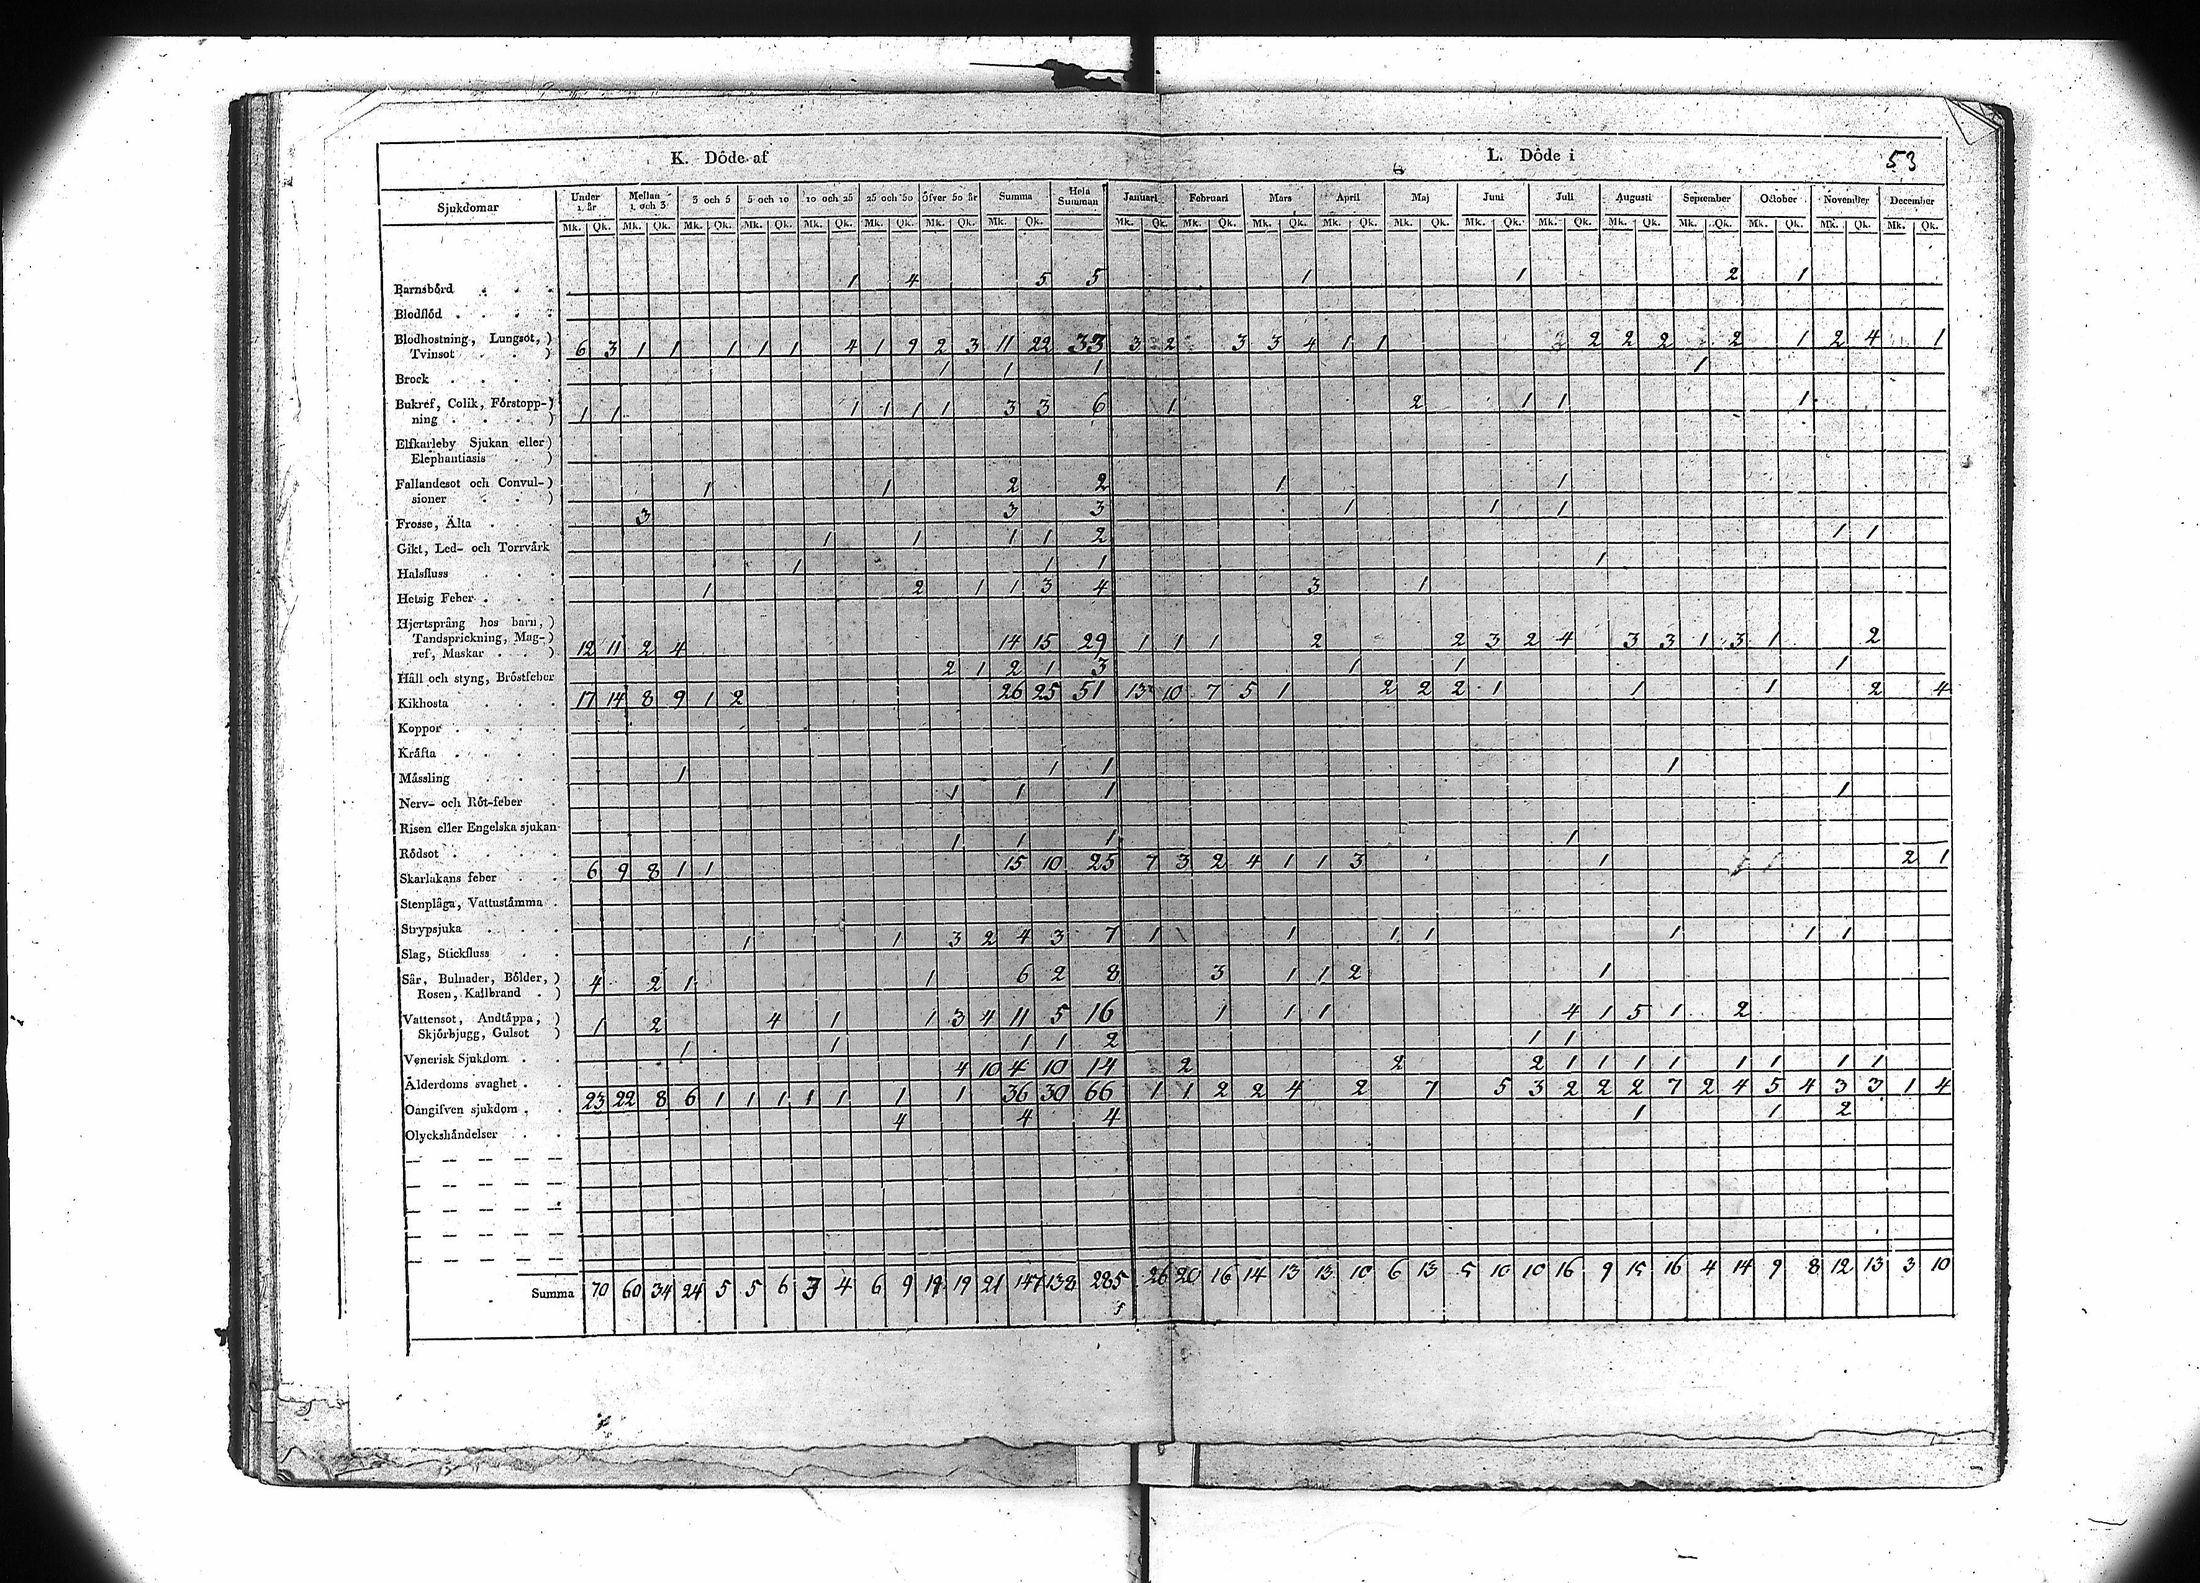 K. Döde af L. Döde i 53
Sjukdomar Under 1. år Mellan 1. och 3 3 och 5 5 och 10 10 och 25 25 och 50 Öfver 50 år Summa Hela Summan Januari Februari Mars April Maj Juni Juli Augusti September October November December
Mk. Qk. Mk. Qk. Mk. Qk. Mk. Qk. Mk. Qk. Mk. Qk. Mk. Qk. Mk. Qk. Mk. Qk. Mk. Qk. Mk. Qk. Mk. Qk. Mk. Qk. Mk. Qk. Mk. Qk. Mk. Qk. Mk. Qk. Mk. Qk. Mk. Qk. Mk. Qk.
Barnsbörd . . . 1 4 5 5 1 1 2 1
Blodflöd . . . .
Blodhostning, Lungsot, )
Tvinsot . . . ) 6 3 1 1 1 1 1 4 1 9 2 3 11 22 33 3 2 3 3 4 1 1 2 2 2 2 2 1 2 4 1
Brock . . . . 1 1 1 1
Bukref, Colik, Förstopp-)
ning . . . . ) 1 1 1 1 1 1 3 3 6 1 2 1 1 1
Elfkarleby Sjukan eller )
Elephantiasis . )
Fallandesot och Convul-)
sioner . . ) 1 1 2 2 1 1
Frosse, Älta . . . 3 3 3 1 1 1
Gikt, Led- och Torrvärk 1 1 1 1 2 1 1
Halsfluss . . . 1 1 1 1
Hetsig Feber . . . 1 2 1 1 3 4 3 1
Hjertspräng hos barn, )
Tandsprickning, Mag-)
ref, Maskar . . ) 12 11 2 4 14 15 29 1 1 1 2 2 3 2 4 3 3 1 3 1 2
Håll och styng, Bröstfeber 2 1 2 1 3 1 1 1
Kikhosta . . . 17 14 8 9 1 2 26 25 51 13 10 7 5 1 2 2 2 1 1 1 2 4
Koppor . . . .
Kräfta . . . .
Mässling . . . 1 1 1 1
Nerv- och Röt-feber . 1 1 1 1
Risen eller Engelska sjukan
Rödsot . . . . 1 1 1 1
Skarlakans feber . . 6 9 8 1 1 15 10 25 7 3 2 4 1 1 3 1 2 1
Stenplåga, Vattustämma .
Strypsjuka . . .
Slag, Stickfluss . . 1 1 3 2 4 3 7 1 1 1 1 1 1 1
Sår, Bulnader, Bölder, )
Rosen, Kallbrand . ) 4 2 1 1 6 2 8 3 1 1 2 1
Vattensot, Andtäppa, )
Skjörbjugg, Gulsot ) 1 2 4 1 1 3 4 11 5 16 1 1 1 4 1 5 1 2
Venerisk Sjukdom . . 1 1 1 1 2 1 1
Ålderdoms svaghet . . 4 10 4 10 14 2 2 2 1 1 1 1 1 1 1 1
Oangifven sjukdom . . 23 22 8 6 1 1 1 1 1 1 1 36 30 66 1 1 2 2 4 2 7 5 3 2 2 2 7 2 4 5 4 3 3 1 4
Olyckshändelser . . 4 4 4 1 1 2
Summa 70 60 34 24 5 5 6 3 4 6 9 19 19 21 147 138 285 26 20 16 14 13 13 10 6 13 5 10 10 16 9 15 16 4 14 9 8 12 13 3 10